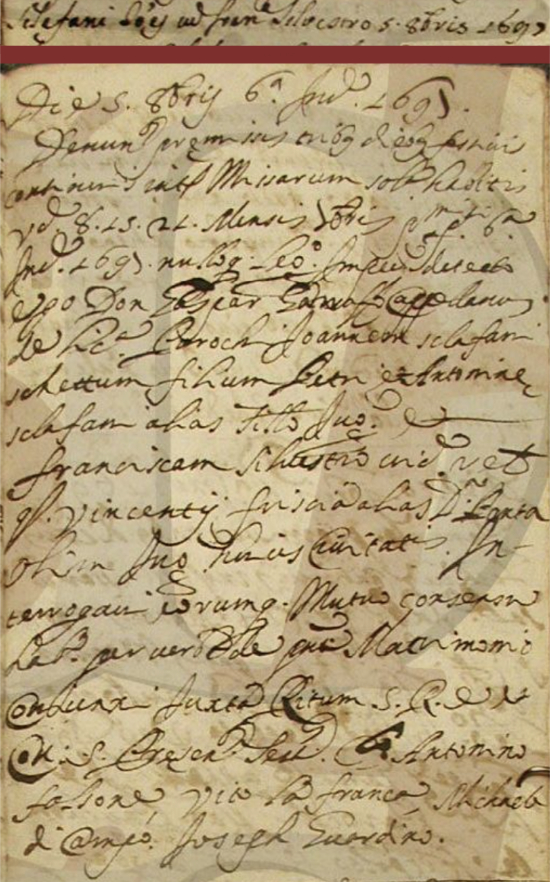 Sclefani Joēs ad Fran: Silvestro 5. 8bris 1697
Die 5. 8bris 6.ª Ind. 1697.
Denun.s premissis tribq dieb9 festivis
continuis inter Missarum solē habitis
vd. 8. 15. 21. Mensis 7bris 6.ª
Ind. 1697. nulloq. Leg.º Imped. detecto
ego Don Gaspar Cappellanus
de lic.ª Paroch. Joannem sclafani
schettum filium Petri et Antonine
sclafani alias Tillō Jug.
Franciscam Silvestro vid. rel
q. Vincentij frisciā alias
olim Jug huius Civitatis. In-
terrogavi eorumq. Mutuo consensu
hab. per verba de pnti Matrimonio
Coniunxi Juxta Ritum S. R. E.
S. Presen. Test. Antonino
falsone Vito la franca Michaele
di Campo Joseph Guardino.